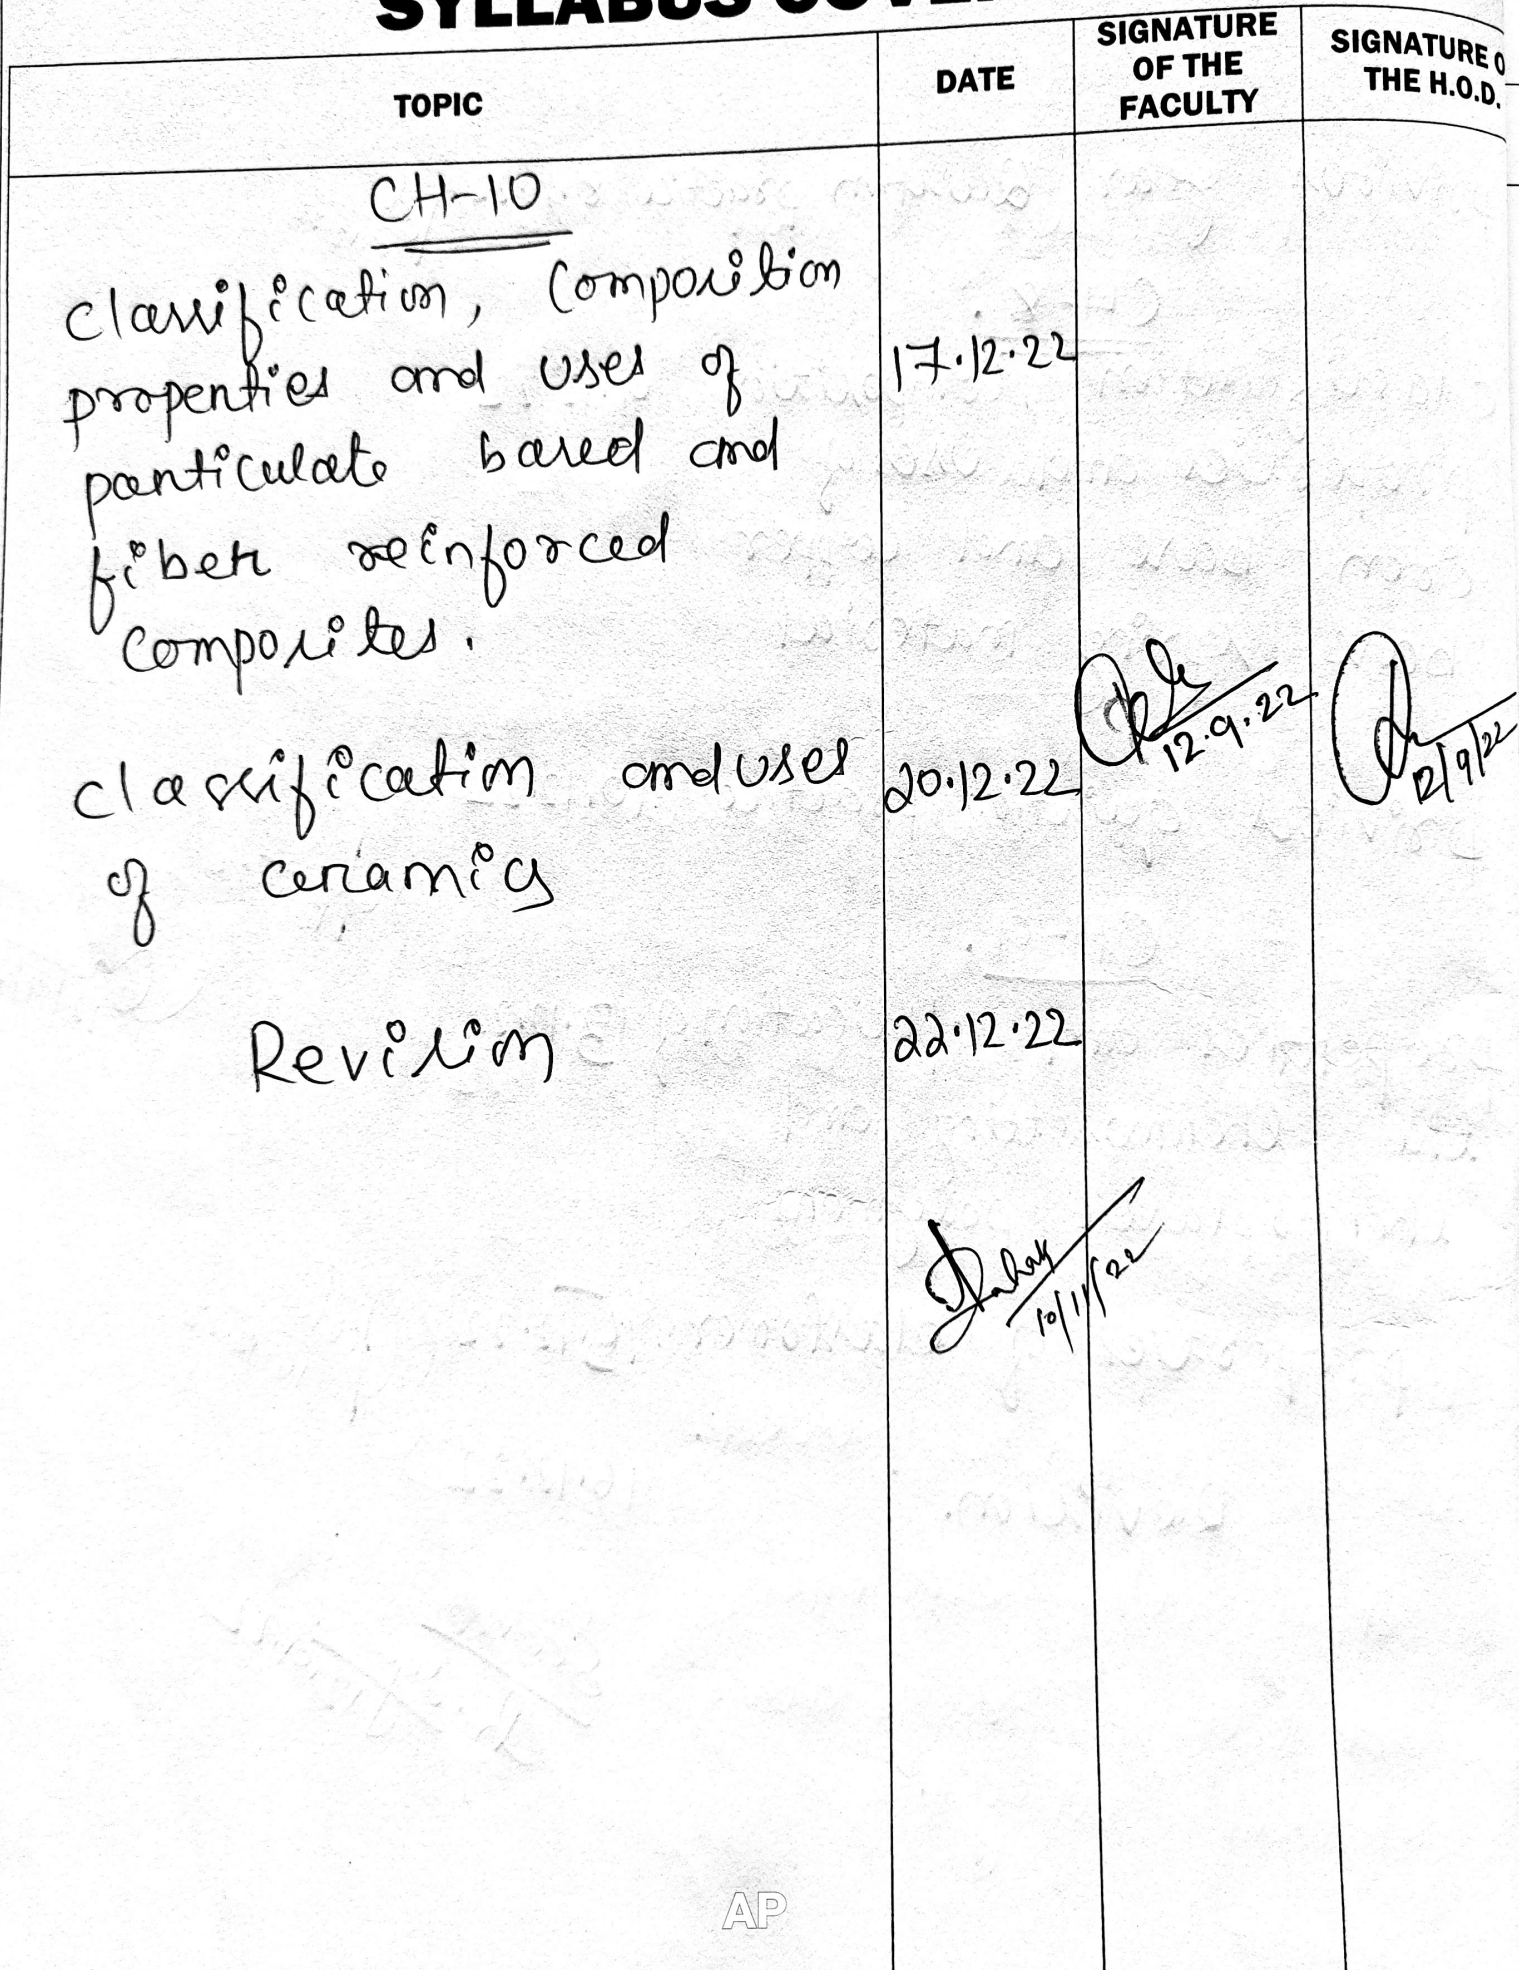 SYLLABUS COVE
TOPIC
DATE
SIGNATURE
OF THE
FACULTY
SIGNATURE O
THE H.O.D.
CH-10
Classification, Composition
properties and uses of
particulate based and
fiber reinforced
Composites.
17.12.22
12.9.22
12/9/22
Classification and uses
of ceramics
20.12.22
Revision
22.12.22
10/11/22
AP